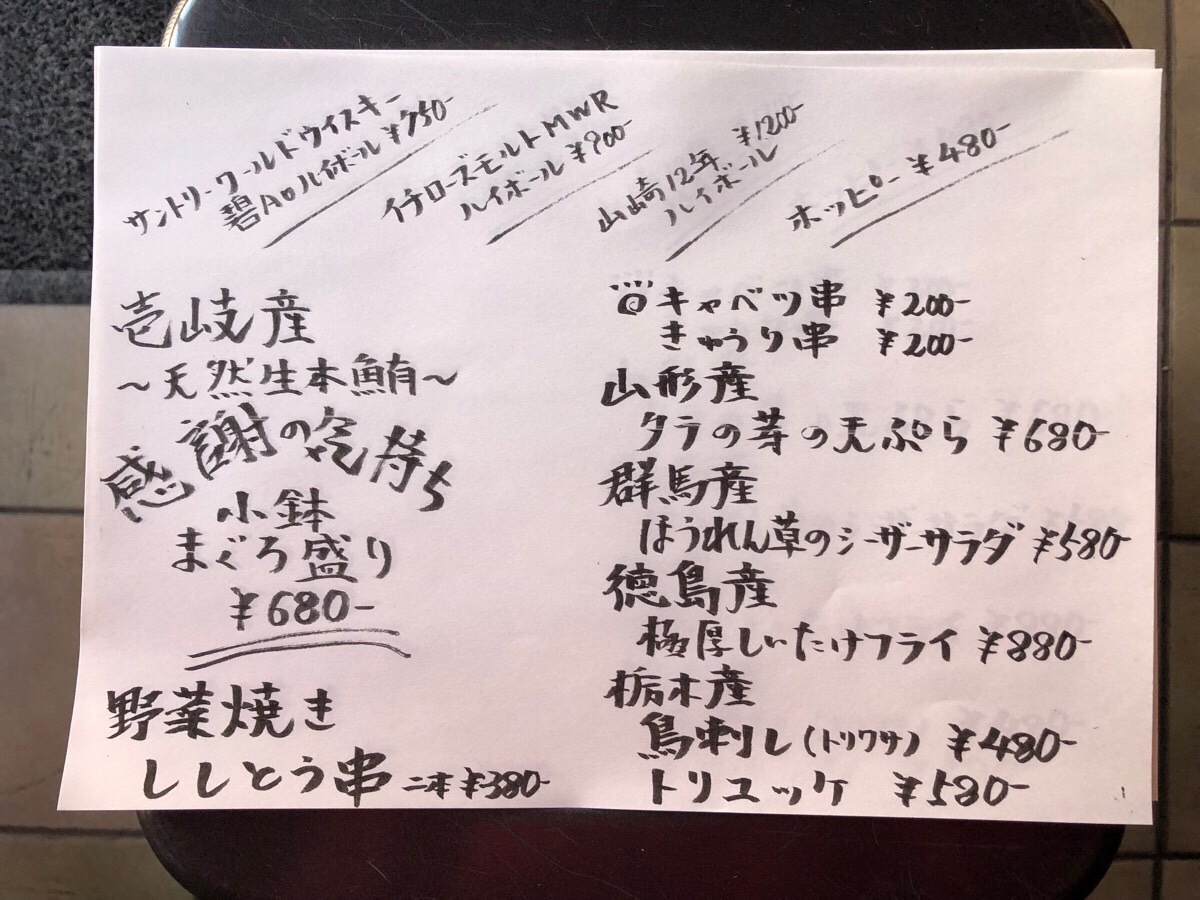 サントリーワールドウイスキー
碧Aoハイボール ¥750-
イチローズモルトMWR
ハイボール ¥900-
山崎12年 ¥1200-
ハイボール
ホッピー ¥480-
壱岐産
~天然生本鮪~
感謝の気持ち
小鉢
まぐろ盛り
¥680-
野菜焼き
ししとう串 二本 ¥380-
キャベツ串 ¥200-
きゅうり串 ¥200-
山形産
タラの芽の天ぷら ¥680-
群馬産
ほうれん草のシーザーサラダ ¥580-
徳島産
極厚しいたけフライ ¥880-
栃木産
鳥刺し(トリワサ) ¥480-
トリユッケ ¥580-